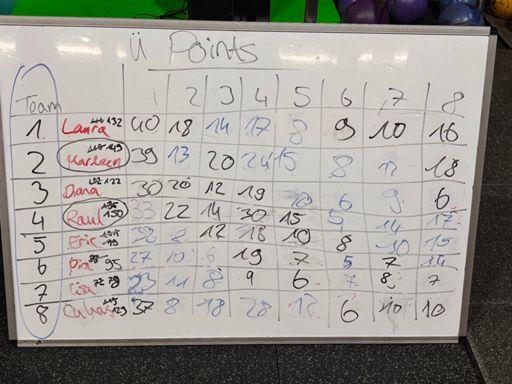 Ü Points
Team 1 2 3 4 5 6 7 8
1 Laura 132 40 18 14 17 8 9 10 16
2 Marleen 149 39 13 20 24 15 8 18
3 Diana 122 30 20 12 19 6 9 6
4 Raul 150 33 22 14 30 15 5 14 17
5 Eric 32 8 12 18 10 8 10 15
6 Pia 95 27 10 6 19 7 5 7 14
7 Lisa 79 23 11 8 9 6 7 8 7
8 123 37 8 18 28 6 10 10